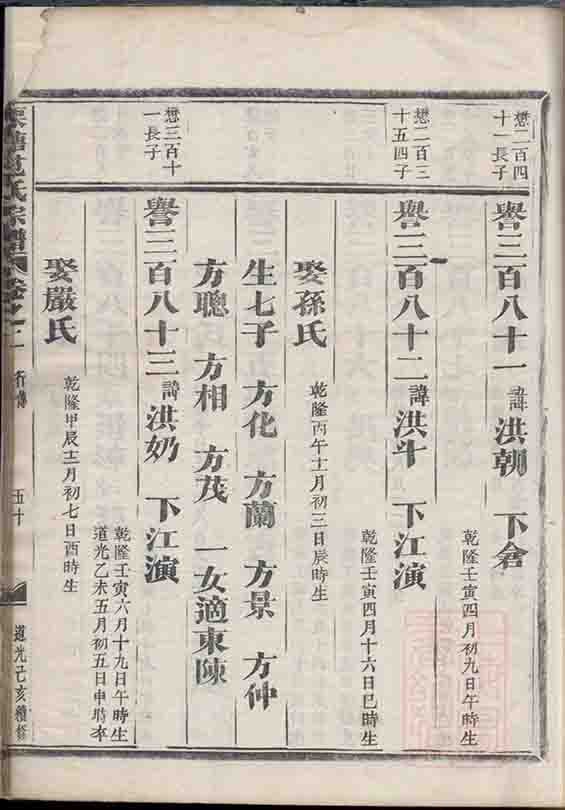 懋二百四
十一長子
譽三百八十一 諱 洪朝 下倉
乾隆壬寅四月初九日午時生
懋二百三
十五四子
譽三百八十二 諱 洪斗 下江演
乾隆壬寅四月十六日巳時生
娶孫氏
乾隆丙午十月初二日辰時生
生七子 方化 方蘭 方景 方仲
方聰 方相 方茂 一女適東陳
懋三百十
一長子
譽三百八十三 諱 洪奶 下江演
乾隆壬寅六月十九日午時生
道光乙未五月初五日申時卒
娶嚴氏
乾隆甲辰十二月初七日酉時生
氏宗譜 卷之二 行傳 五十 道光己亥續修